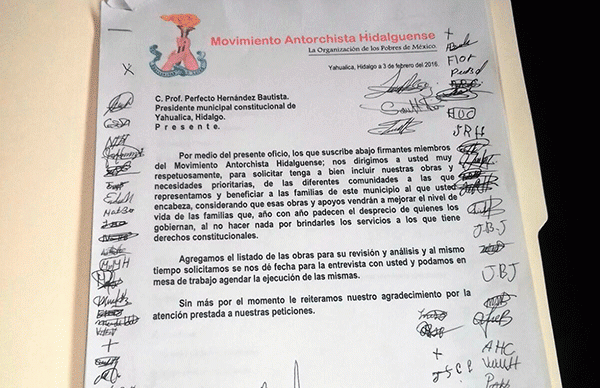 Movimiento Antorchista Hidalguense
La Organización de los Pobres de México.
Yahualica, Hidalgo a 3 de febrero del 2016.
C. Prof. Perfecto Hernández Bautista.
Presidente municipal constitucional de
Yahualica, Hidalgo.
P r e s e n t e.
Por medio del presente oficio, los que suscribe abajo firmantes miembros
del Movimiento Antorchista Hidalguense; nos dirigimos a usted muy
respetuosamente, para solicitar tenga a bien incluir nuestras obras y
necesidades prioritarias, de las diferentes comunidades a las que
representamos y beneficiar a las familias de este municipio al que usted
encabeza, considerando que esas obras y apoyos vendrán a mejorar el nivel de
vida de las familias que, año con año padecen el desprecio de quienes los
gobiernan, al no hacer nada por brindarles los servicios a los que tiene
derechos constitucionales.
Agregamos el listado de las obras para su revisión y análisis y al mismo
tiempo solicitamos se nos dé fecha para la entrevista con usted y podamos en
mesa de trabajo agendar la ejecución de las mismas.
Sin más por el momento le reiteramos nuestro agradecimiento por la
atención prestada a nuestras peticiones.
Flor
JRH
J.B.J
JBJ
AHC